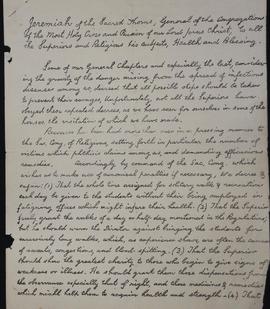 Jeremiah of the Sacred Thorns, General of the Congregations
of the Most Holy Cross and Passion of our Lord Jesus Christ, to all
the Superiors and Religious his subjects, Health and Blessing.
Some of our General Chapters and especially the last, consider-
ing the gravity of the danger arising from the spread of infectious
diseases among us, decreed that all possible steps should be taken
to prevent their ravages. Unfortunately, not all the Superiors have
obeyed these repeated decrees, as we have seen for ourselves in some of the
houses, the visitation of which we have made.
Recourse has been had more than once in a pressing manner to
the Sac. Cong. of Religious, setting forth in particular, the number of
victims which phthisis claims among us, and demanding efficacious
remedies. Accordingly, by command of the Sac. Cong. which
wishes us to make use of canonical penalties if necessary, we decree &
enjoin: (1) That the whole time assigned for solitary walks & recreations
each day be given to the students without their being employed in
fatiguing offices which might injure their health. (2) That the Superior
freely grant the walks of a day or half-day mentioned in the Regulations;
but he should warn the Director against bringing the students for
excessively long walks, which, as experience shows, are often the causes
of sweats, congestions, and blood spitting. (3) That the Superior
should show the greatest charity to those who begin to give signs of
weakness or illness. He should grant them those dispensations from
the observance especially that of night, and those medicines & remedies
which might help them to acquire health and strength. (4) That